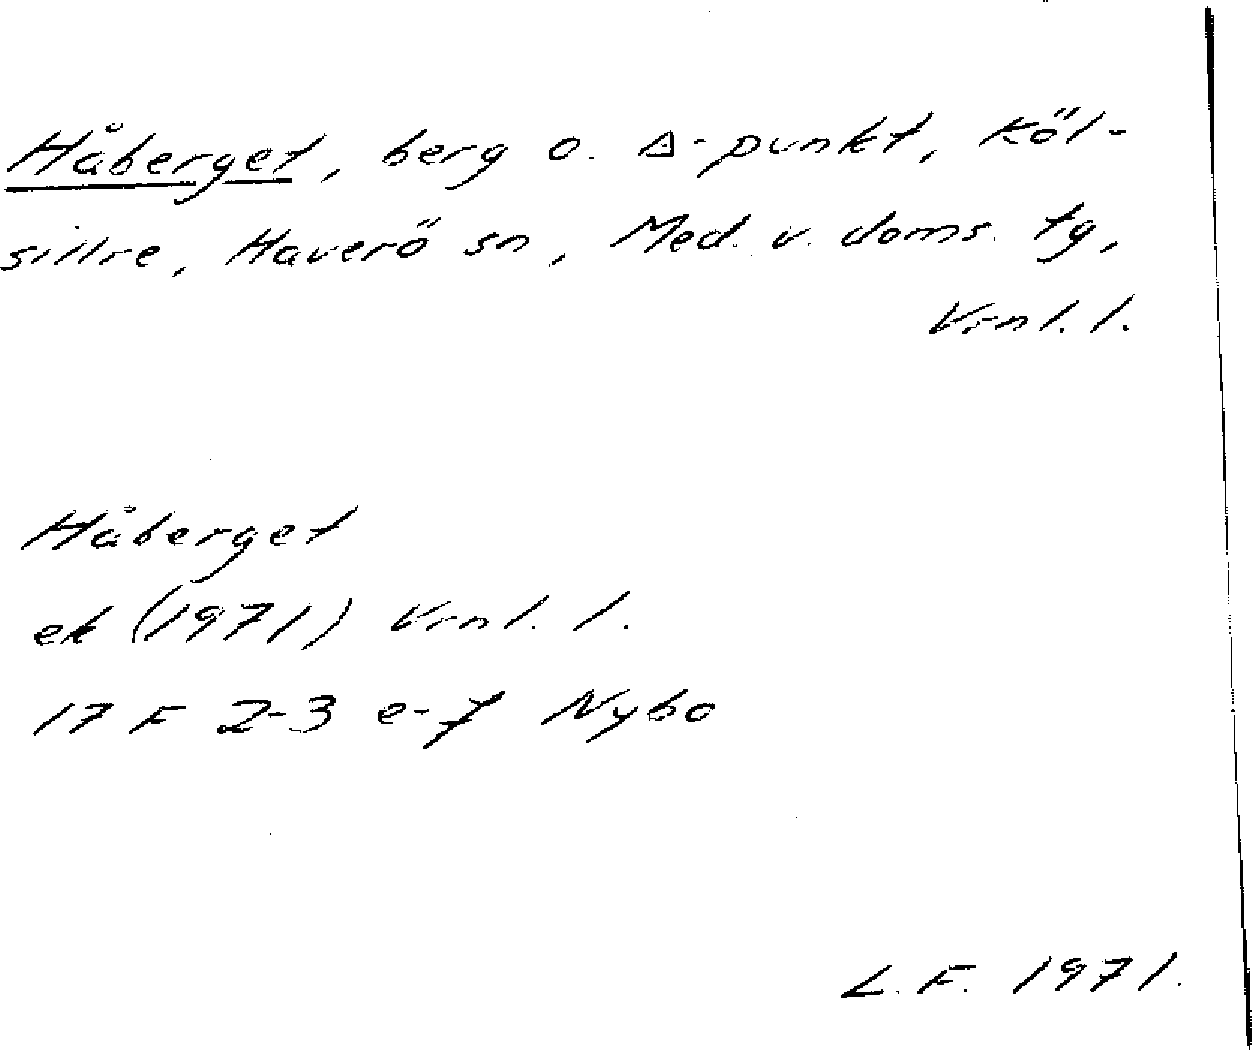 Håberget, berg o. ∆-punkt, Köl-
sillre, Haverö sn, Med. v. doms. tg,
Vrnl. l.
Håberget
ek (1971) Vrnl. l.
17 F 2-3 e-f Nybo
L. F. 1971.